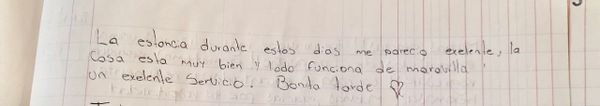 La estancia durante estos dias me parecio exelente, la
casa esta muy bien y todo funciona de maravilla
un exelente servicio. Bonita tarde ♡